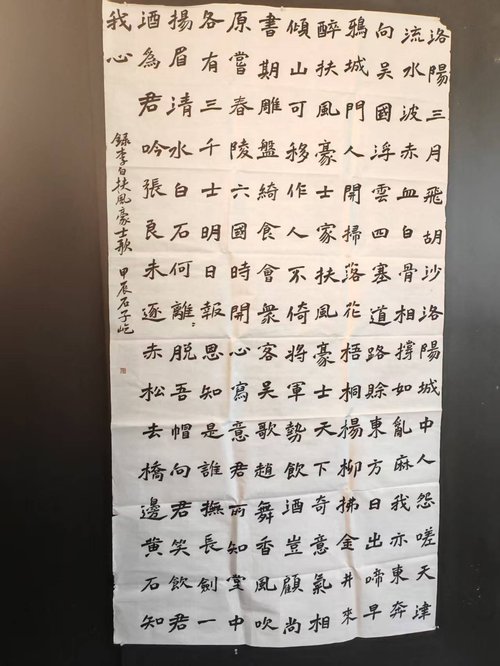 洛陽三月飛胡沙洛陽城中人怨嗟天津
流水波赤血白骨相撐如亂麻我亦東奔
向吳國浮雲四塞道路賒東方日出啼早
鴉城門人開掃落花梧桐楊柳拂金井來
醉扶風豪士家扶風豪士天下奇意氣相
傾山可移作人不倚將軍勢飲酒豈顧尚
書期雕盤綺食會衆客吳歌趙舞香風吹
原嘗春陵六國時開心寫意君所知堂中
各有三千士明日報恩知是誰撫長劍一
揚眉清水白石何離〻脫吾帽向君笑飲君
酒為君吟張良未逐赤松去橋邊黃石知
我心
錄李白扶風豪士歌 甲辰石子屹